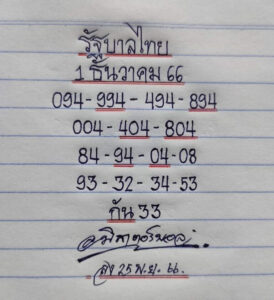 รัฐบาลไทย
1 ธันวาคม 66
094 - 994 - 494 - 894
004 - 404 - 804
84 - 94 - 04 - 08
93 - 32 - 34 - 53
กัน 33
ส่ง 25 พ.ย. 66.